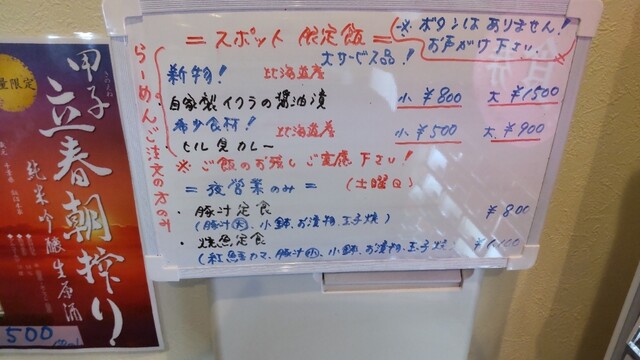 = スポット 限定飯 =
※ ボタンはありません!
お声がけ下さい。
大サービス品!
らーめんご注文の方のみ
新物! 北海道産
・自家製イクラの醤油漬 小 ¥800 大 ¥1500
希少食材! 北海道産
・ヒル貝カレー 小 ¥500 大 ¥900
※ ご飯のお残しご遠慮下さい!
= 夜営業のみ = (土曜日)
・豚汁定食 ¥800
(豚汁大、小鉢、お漬物、玉子焼)
・焼魚定食
(紅鮭カマ、豚汁小、小鉢、お漬物、玉子焼)
量限定
甲子
きのえね
立春朝搾り
純米吟醸生原酒
500